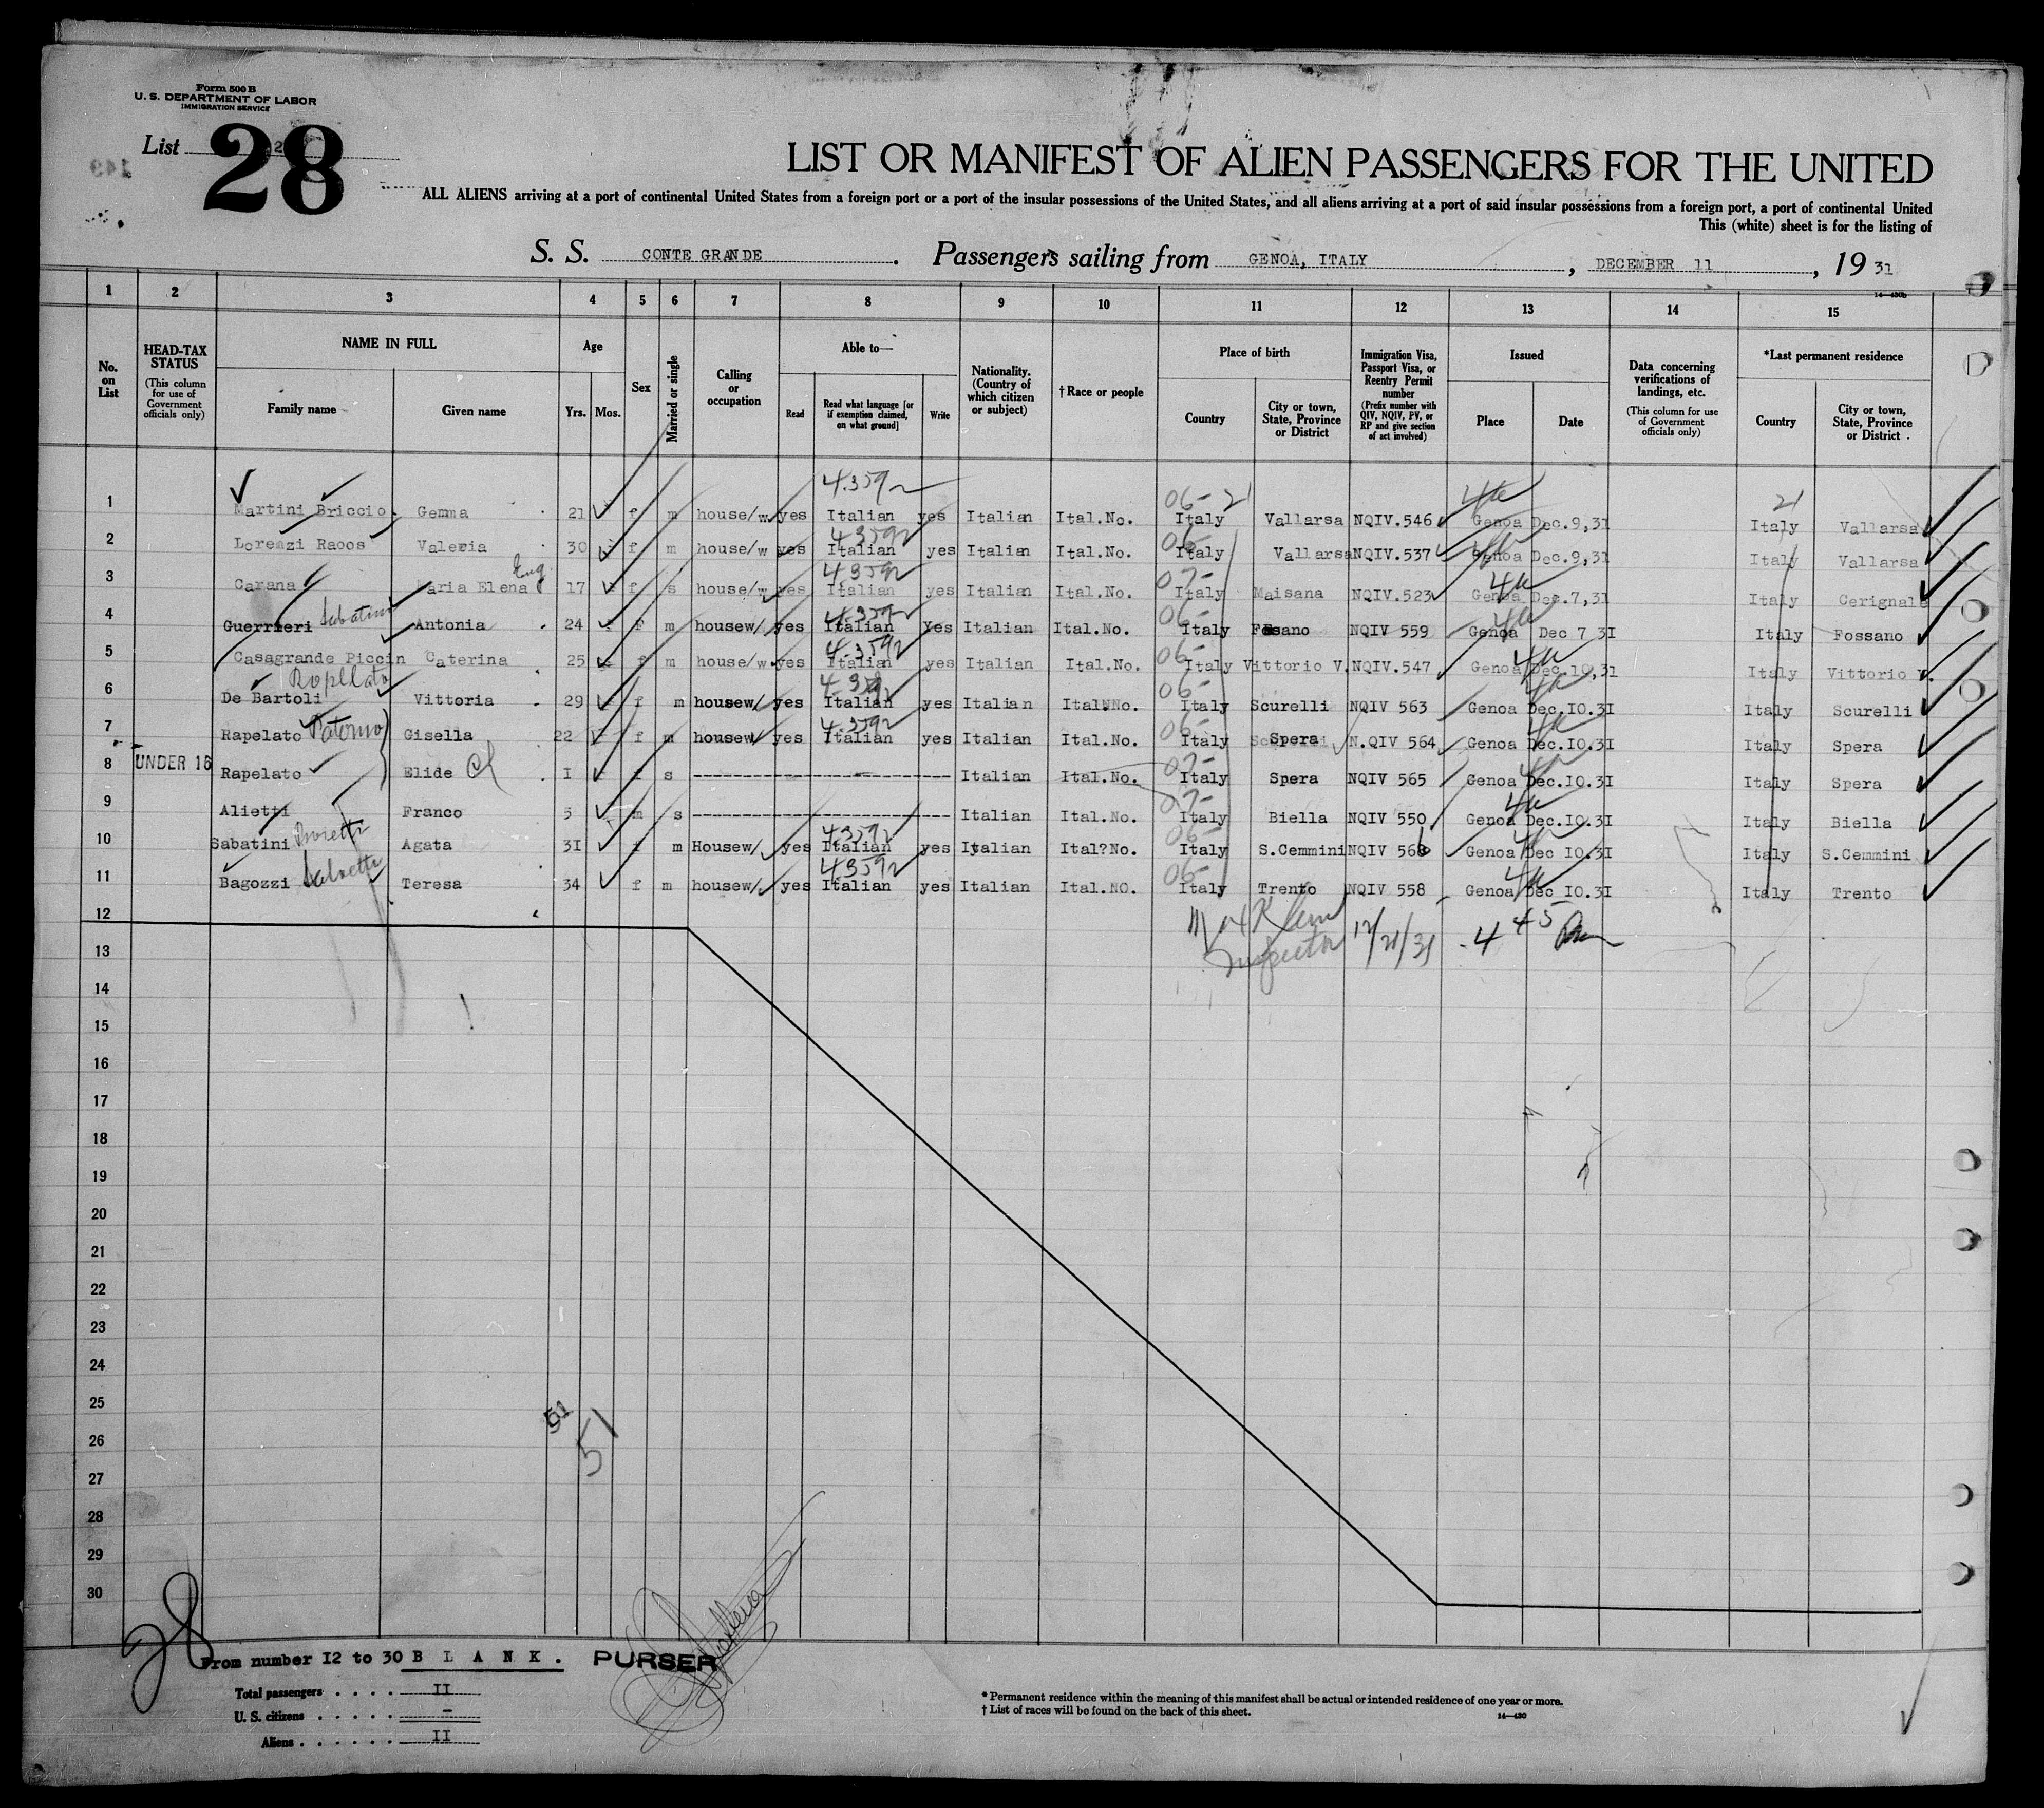 Form 500 B
U. S. DEPARTMENT OF LABOR
IMMIGRATION SERVICE
List 28
LIST OR MANIFEST OF ALIEN PASSENGERS FOR THE UNITED
ALL ALIENS arriving at a port of continental United States from a foreign port or a port of the insular possessions of the United States, and all aliens arriving at a port of said insular possessions from a foreign port, a port of continental United
This (white) sheet is for the listing of
S. S. CONTE GRANDE. Passengers sailing from GENOA, ITALY, DECEMBER 11, 19 31
14—430b
1 2 3 4 5 6 7 8 9 10 11 12 13 14 15
No. on List
HEAD-TAX STATUS
(This column for use of Government officials only)
NAME IN FULL
Family name
Given name
Age
Yrs. Mos.
Sex
Married or single
Calling or occupation
Able to—
Read
Read what language [or if exemption claimed, on what ground]
Write
Nationality. (Country of which citizen or subject)
†Race or people
Place of birth
Country
City or town, State, Province or District
Immigration Visa, Passport Visa, or Reentry Permit number
(Prefix number with QIV, NQIV, PV, or RP and give section of act involved)
Issued
Place
Date
Data concerning verifications of landings, etc.
(This column for use of Government officials only)
*Last permanent residence
Country
City or town, State, Province or District
4.3592 06- 21 4a 21
1 Martini Briccio. Gemma 21 f m house/w. yes Italian yes Italian Ital.No. Italy Vallarsa NQIV.546 Genoa Dec.9,31 Italy Vallarsa
4.3592 06- 4a
2 Lorenzi Raoos Valeria 30 f m house/w yes Italian yes Italian Ital.No. Italy Vallarsa NQIV.537 Genoa Dec.9,31 Italy Vallarsa
Eng. 4.3592 07- 4a
3 Carana Maria Elena 17 f s house/w yes Italian yes Italian Ital.No. Italy Maisana NQIV.523 Genoa Dec.7,31 Italy Cerignale
Sabatini 4.3592 06- 4a
4 Guerrieri Antonia 24 f m housew/ yes Italian Yes Italian Ital.No. Italy Fossano NQIV 559 Genoa Dec 7 3I Italy Fossano
4.3592 06- 4a
5 Casagrande Piccin Caterina 25 f m house/w. yes Italian yes Italian Ital.No. Italy Vittorio V. NQIV.547 Genoa Dec.10,31 Italy Vittorio V.
Ropellato 4.3592 06- 4a
6 De Bartoli Vittoria 29 f m housew/ yes Italian yes Italian Ital No. Italy Scurelli NQIV 563 Genoa Dec.IO.3I Italy Scurelli
Paterno 4.3592 06- 4a
7 Rapelato Gisella 22 f m housew/ yes Italian yes Italian Ital.No. Italy Spera N.QIV 564 Genoa Dec.IO.3I Italy Spera
07- 4a
8 UNDER 16 Rapelato Elide I f s Italian Ital.No. Italy Spera NQIV 565 Genoa Dec.IO.3I Italy Spera
07- 4a
9 Alietti Franco 5 m s Italian Ital.No. Italy Biella NQIV 550 Genoa Dec.IO.3I Italy Biella
4.3592 06- 4a
10 Sabatini Agata 3I f m Housew/ yes Italian yes Italian Ital?No. Italy S.Cemmini NQIV 566 Genoa Dec IO.3I Italy S.Cemmini
Salvetti 4.3592 06- 4a
11 Bagozzi Teresa 34 f m housew/ yes Italian yes Italian Ital.NO. Italy Trento NQIV 558 Genoa Dec IO.3I Italy Trento
12
Inspector 12/21/31
13
14
15
16
17
18
19
20
21
22
23
24
25
51
26
51
27
28
29
30
28
From number I2 to 30 B L A N K . PURSER
Total passengers . . . . II
U. S. citizens . . . . . –
Aliens . . . . . . II
* Permanent residence within the meaning of this manifest shall be actual or intended residence of one year or more.
† List of races will be found on the back of this sheet.
14—430